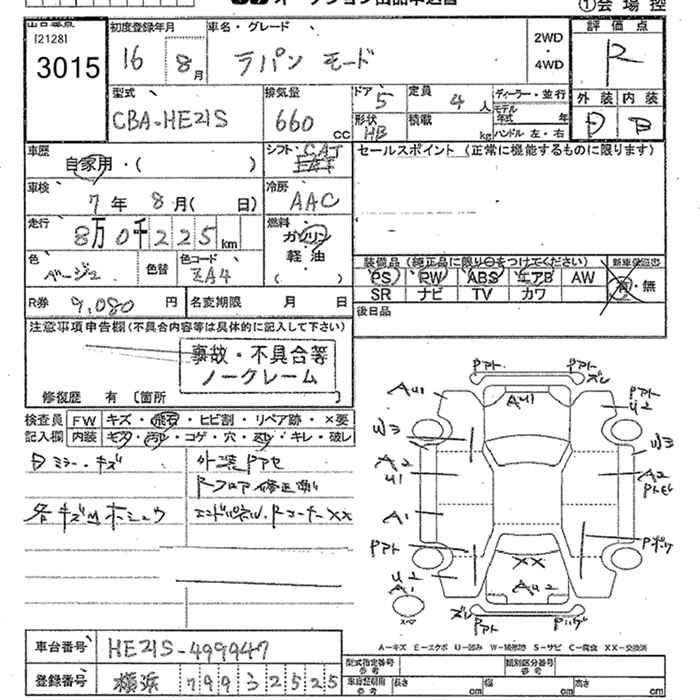 オークション出品申込書
①会場控
[2128]
3015
初度登録年月
16 8月
車名・グレード
ラパン モード
2WD
・4WD
評価点
R
外装 内装
D B
型式
CBA-HE21S
排気量
660 cc
ドア 5
形状 HB
定員 4人
積載 kg
ディーラー・並行
モデル年式 年
ハンドル 左・右
車歴
自家用・( )
シフト CAT
車検
7年 8月( 日)
冷房
AAC
走行
8万0千225km
燃料
ガソリン
軽油
( )
色
ベージュ
色替
色コード
ZA4
R券 9,080 円
名変期限 月 日
セールスポイント (正常に機能するものに限ります)
装備品 (純正品に限り○をつけてください)
新車保証書
PS PW ABS エアB AW
SR ナビ TV カワ
有・無
後日品
注意事項申告欄(不具合内容等は具体的に記入して下さい)
事故・不具合等
ノークレーム
修復歴 有 〔箇所
検査員記入欄
FW キズ・飛石・ヒビ割・リペア跡・×要
内装 キズ・汚れ・コゲ・穴・スレ・キレ・破レ
Dミラー・キズ
外装Pアセ
Rフロア修正跡
各キズUホシュウ
エンドパネル.Rコーナーxx
Pアト
Pアト
ズレ
AU1
AU1
Pアト
U2
W3
W3
A2
U1
A2
A1
Pアト
xx
U2
A2
AU2
ズレ
Pアト
A-キズ E-エクボ U-凹み W-補修跡 S-サビ C-腐食 XX-交換済
車台番号 HE21S-499947
登録番号 横浜 799 3 2525
型式指定番号 参考
類別区分番号 参考
車検証期用 参考
長さ cm
幅 cm
高さ cm